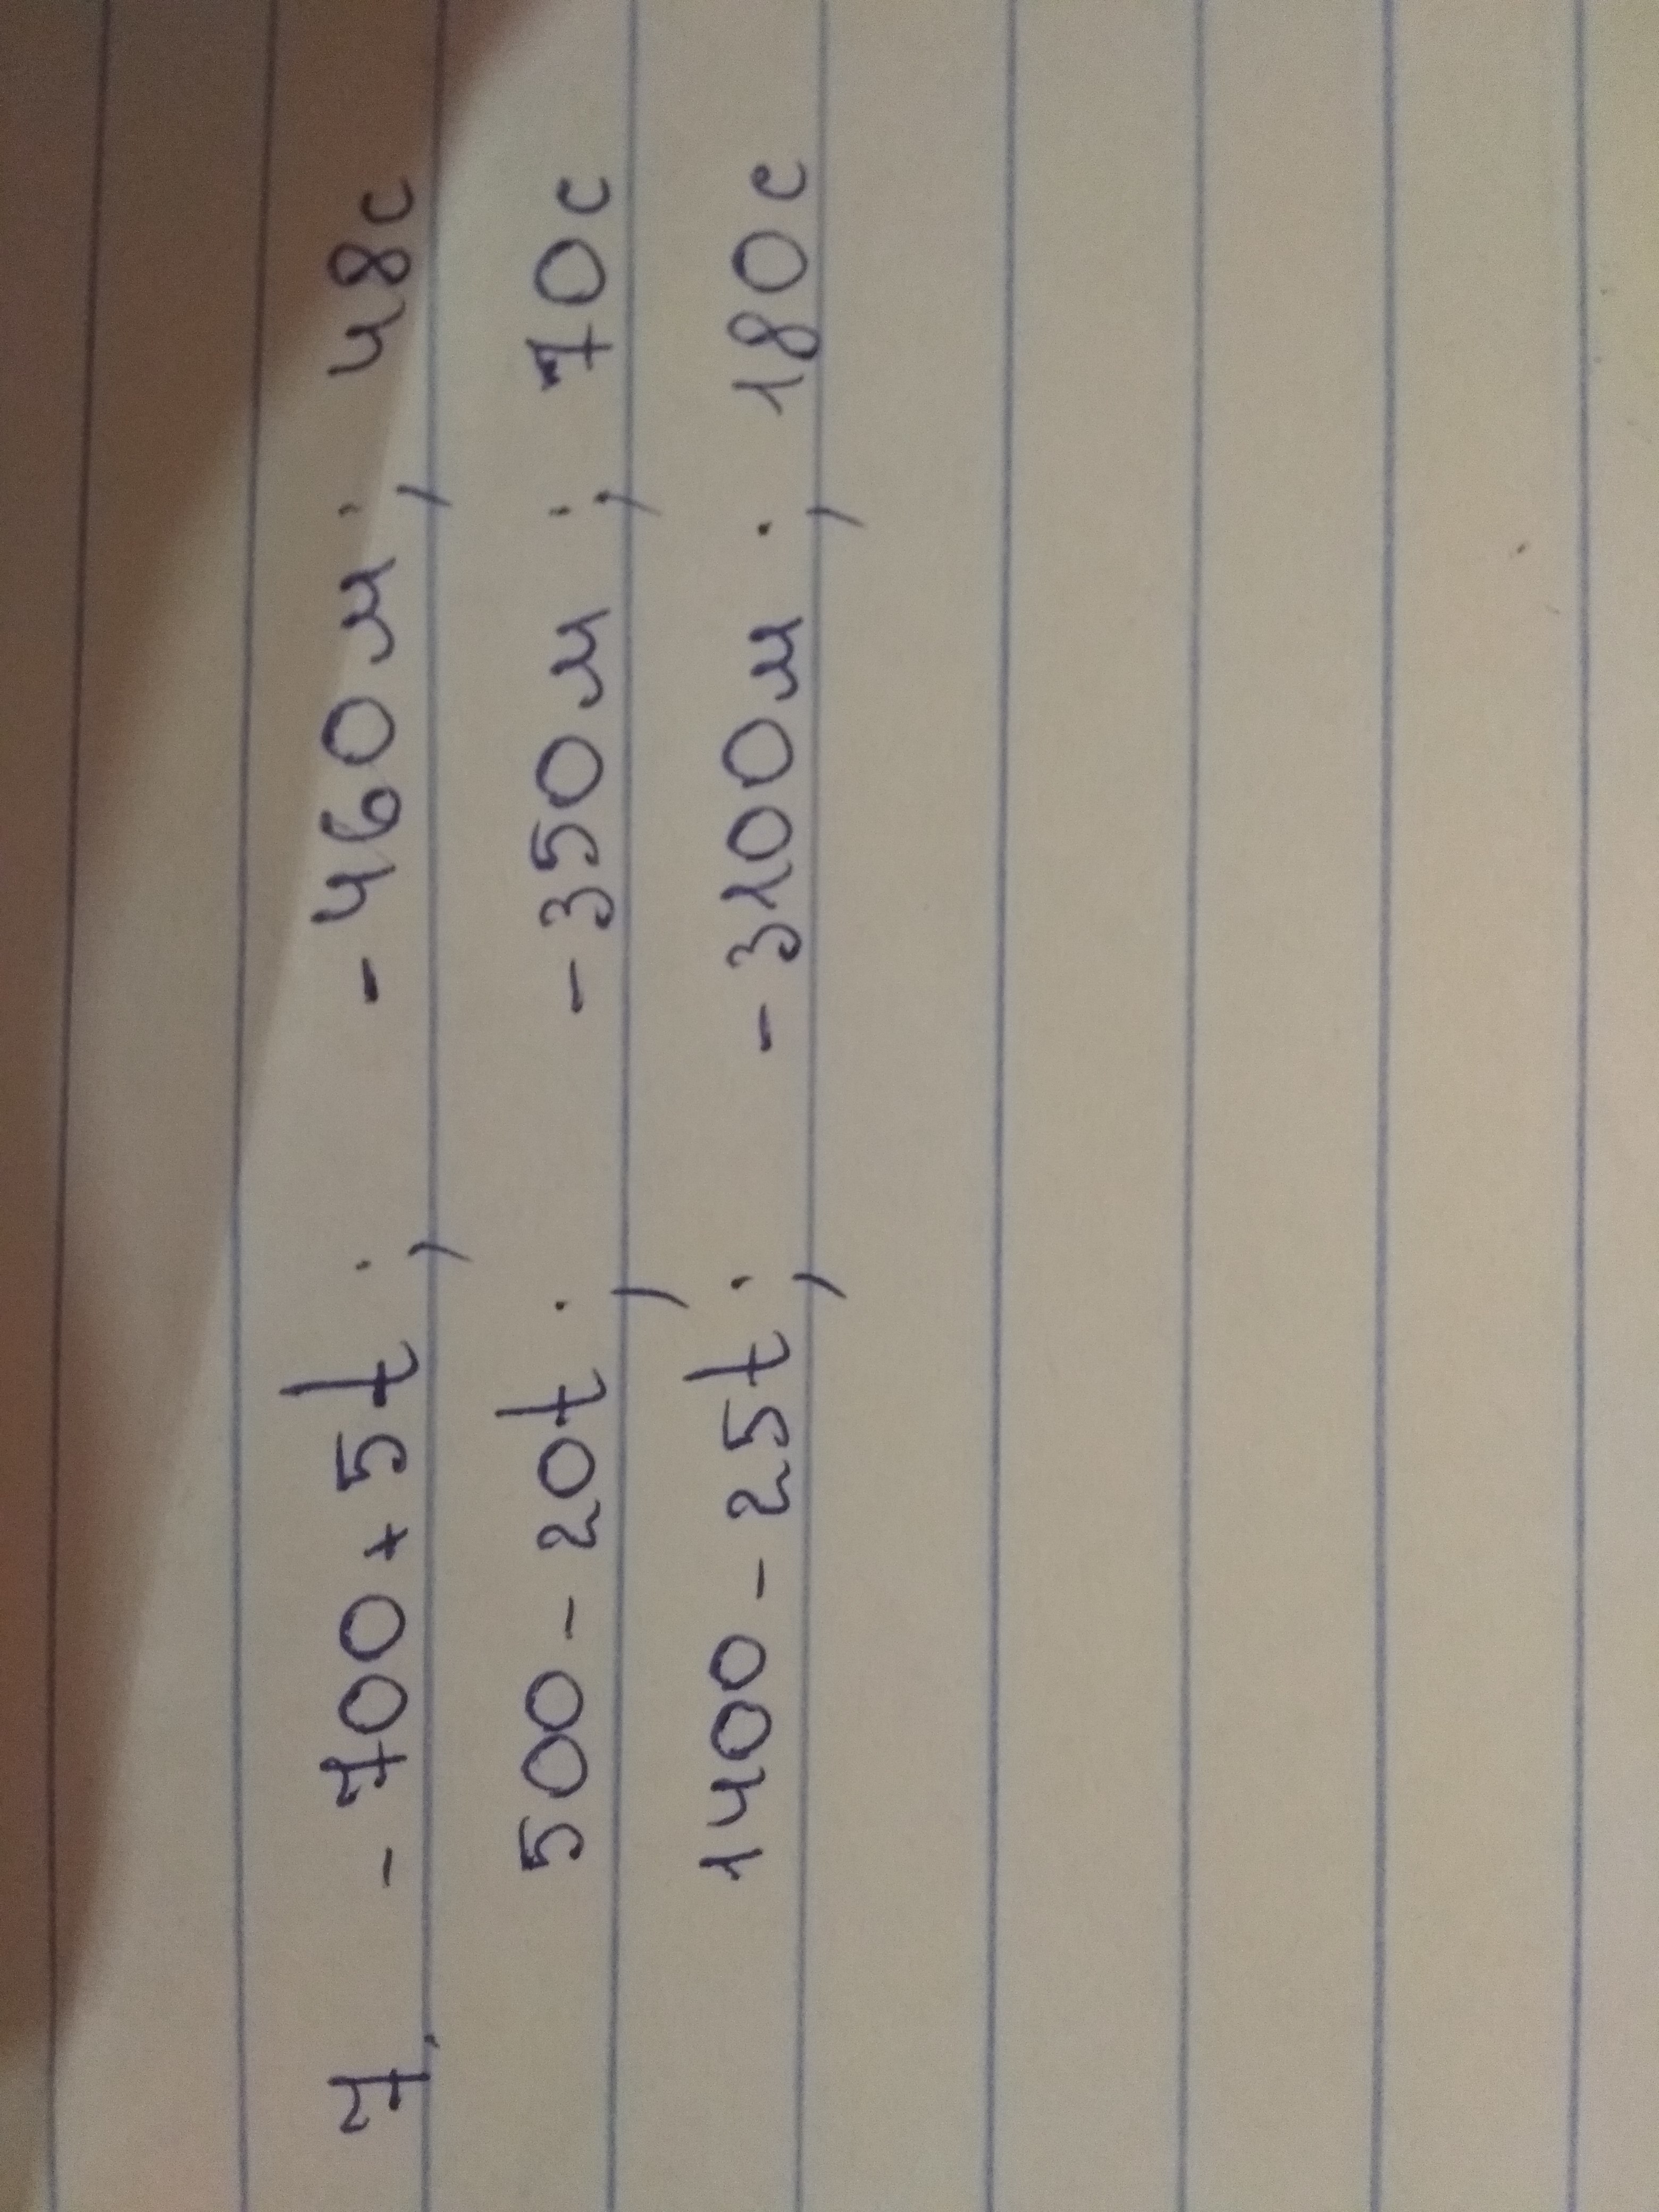 7. - 700 + 5t ; - 460 м ; 48 с
500 - 20t ; - 350 м ; 70 с
1400 - 25t ; - 3100 м ; 180 с